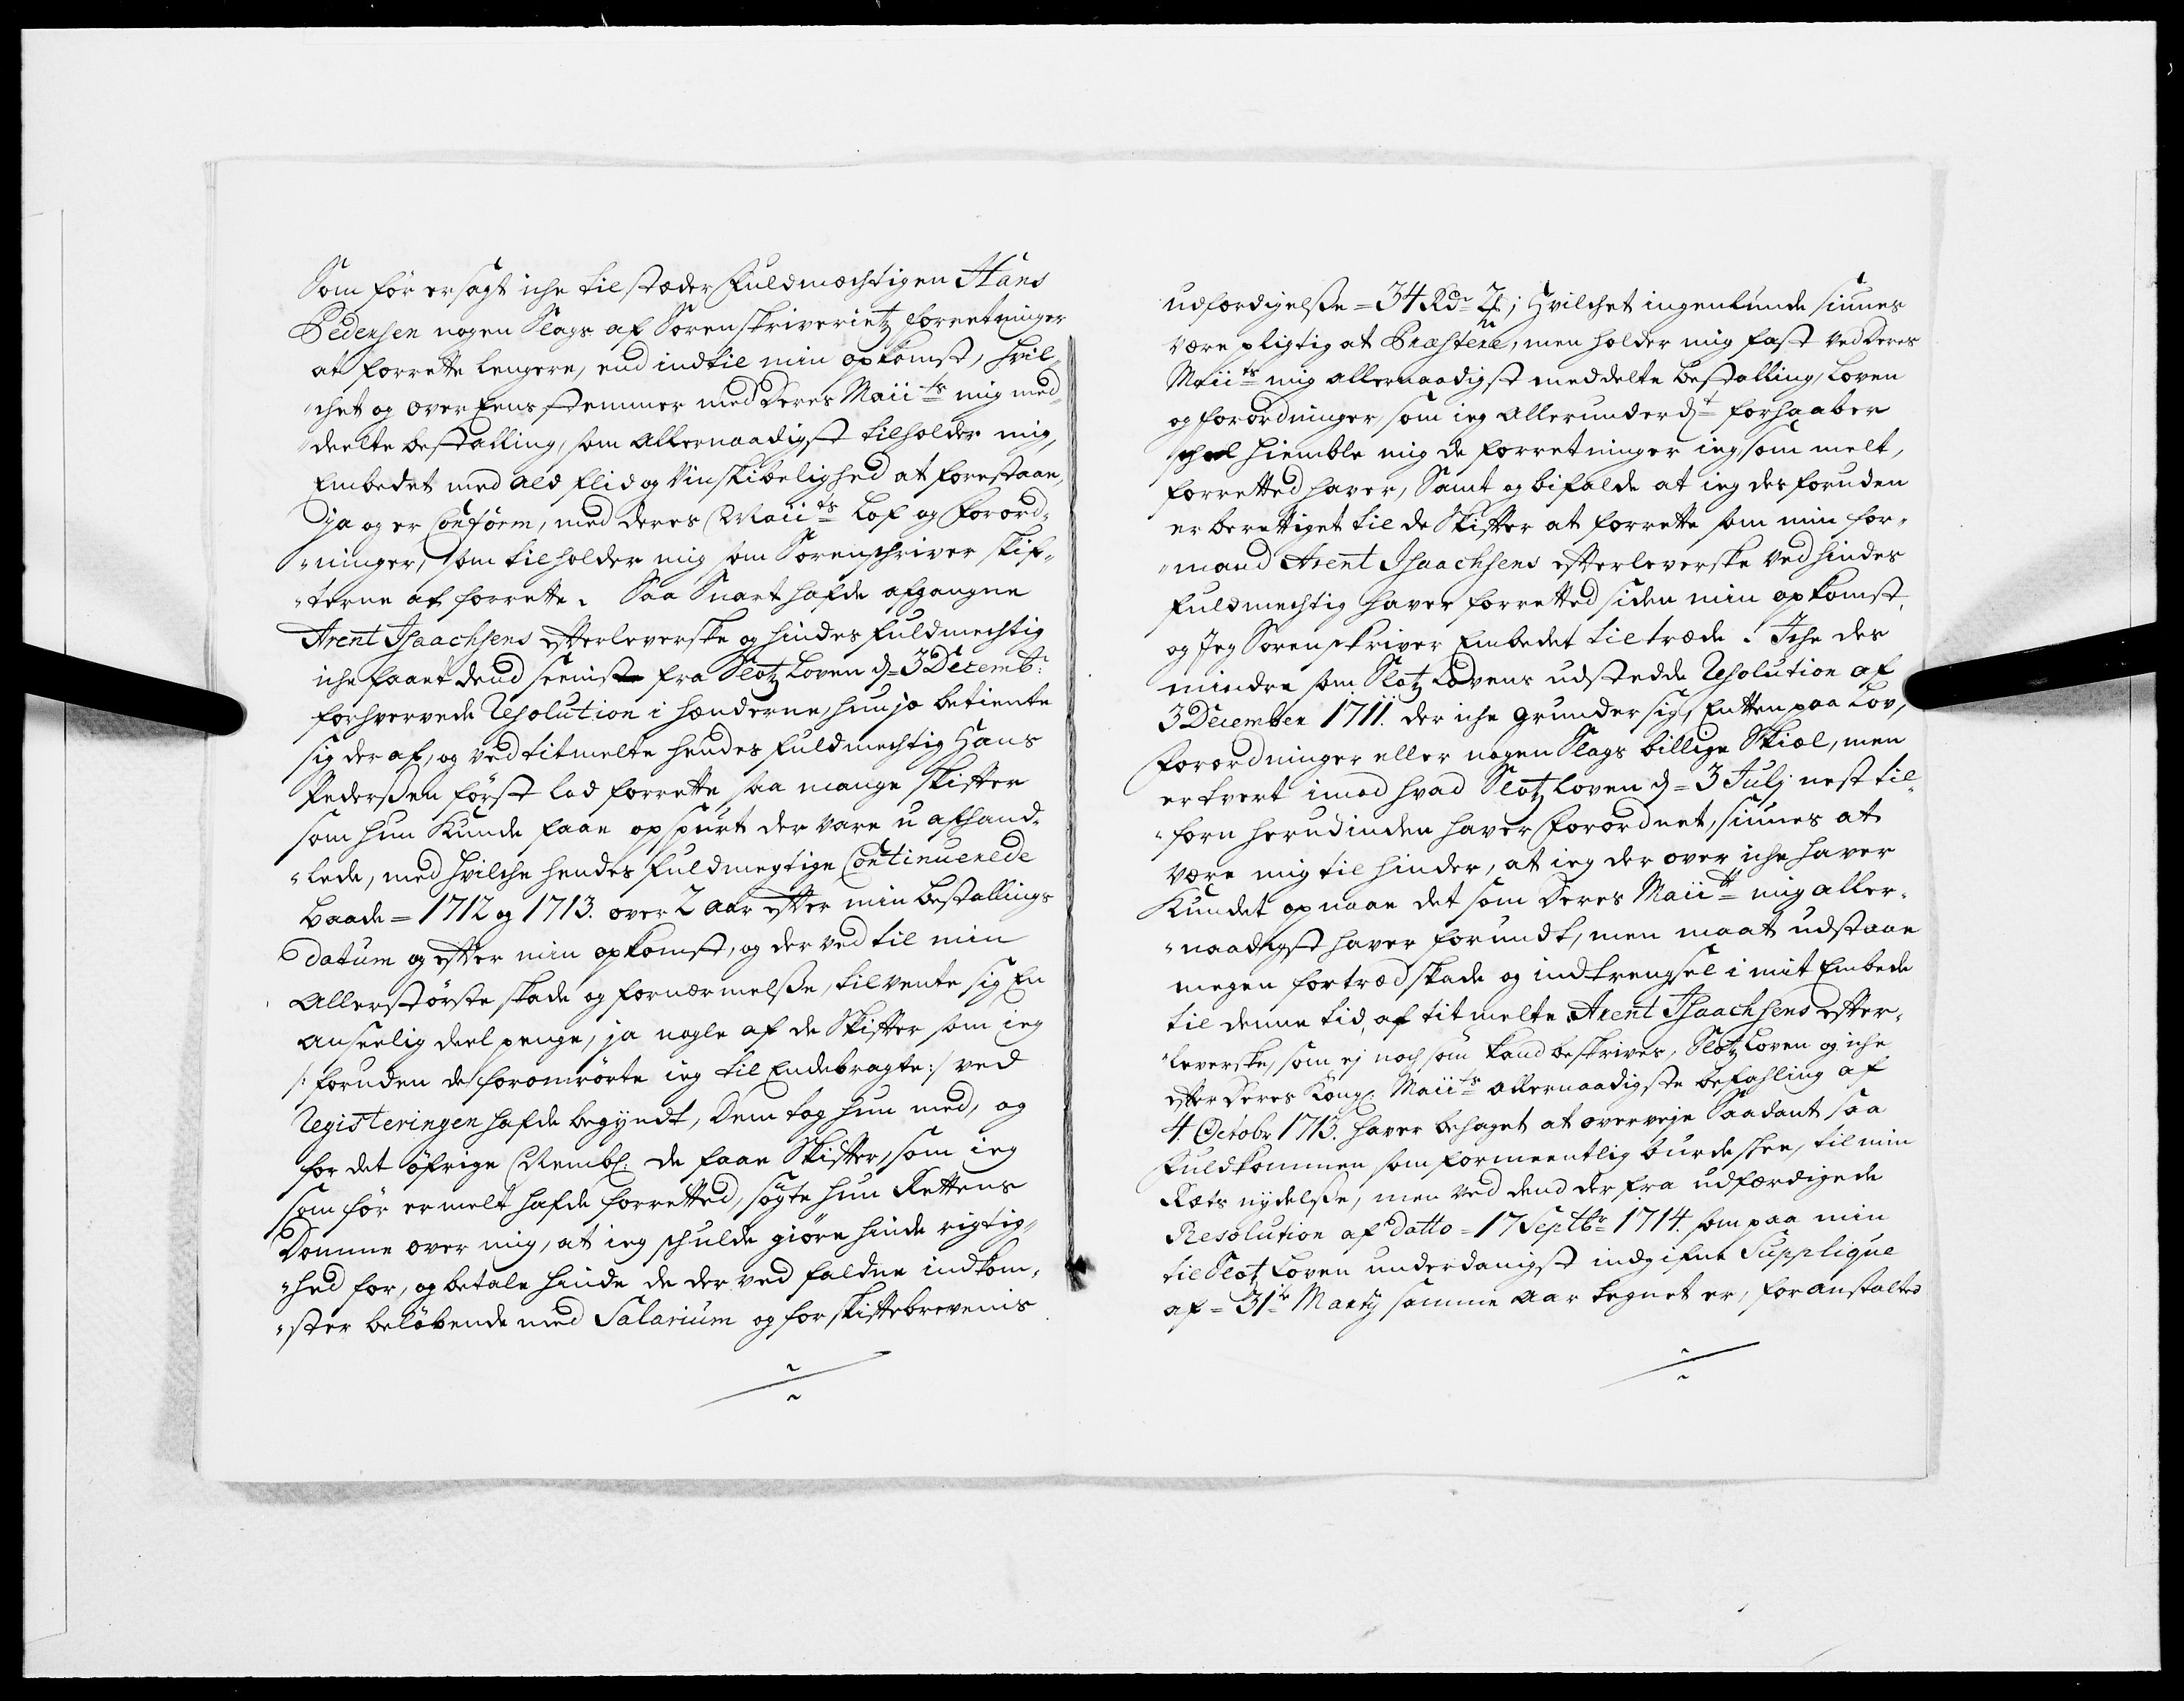 Som før er sagt iche tilstæder Fuldmæchtigen Hans
Pedersen nogen Slags af Sorenskriverietz forretninger
at forrette lengere, end indtil min opkomst, hvil-
"chet og over Eens stemmer med Deres Maiits mig med
"deelte bestalling, som allernaadigst tilholder mig,
Embedet med ald flid og Vinskibelighed at forestaae,
ja og er Conform, med deres Maiits Lof og Forord-
"ninger, som tilholder mig som Sorenschriver skif-
"terne at forrette. Saa Snart hafde afgangne
Arent Isaachsens efterleverske og hindes fuldmechtig
iche faaet dend seeniste fra Slotz Loven d= 3 Decembr:
forhvervede Resolution i hænderne, hun jo betiente
sig der af, og ved titmelte hendes fuldmechtig Hans
Pederssen først lod forrette saa mange skifter
som hun Kunde faae opspurt der vare u afhand-
"lede, med hvilche hendes fuldmegtige Continuerede
baade = 1712 og 1713. over 2 aar efter min bestallings
datum og efter min opkomst, og der ved til min
Allerstørste skade og fornærmelsse, tilvente sig En
anseelig deel penge, ja nogle af de Skifter som ieg
/: foruden de forømrørte ieg til Endebragte :/ ved
Registeringen hafde begyndt, Dem tog hun med, og
for det øfrige de faae Skifter, som ieg
som før er melt hafde forretted, søgte hun Rettens
Domme over mig, at ieg schulde giøre hinde rigtig-
"hed for, og betale hinde de der ved faldne indkom-
"ster beløbende med Salarium og for skiftebrevenis
udfærdigelsse = 34 Rdr 2; Hvilchet ingenlunde siunes
være pligtig at Præstere, men holder mig fast ved Deres
Maiits mig allernaadigst meddelte bestalling, Loven
og forordninger, som ieg allerunderdt forhaaber
schal hiemble mig de forretninger ieg som melt,
forretted haver, Samt og bifalde at ieg des foruden
er berettiget til de Skifter at forrette som min for-
"mand Arent Isaachsens efterleverske ved hindes
fuldmechtig haver forretted siden min opkomst,
og Jeg Sorenskriver Embedet til træde. Iche des
mindre som Slotz Lovens udstedde Resolution af
3 December 1711. der iche grunder sig, Enten paa Lov,
Forordninger eller nogen Slags billige Skiæl, men
er tvert imod hvad Slotz Loven d= 3 Julj nest til-
"forn herudinden haver Forordnet, siunes at
være mig til hinder, at ieg der over iche haver
Kundet opnaae det som Deres Maiitt mig aller-
"naadigst haver forundt, men maat udstaae
megen fortræd skade og indtrengsel i mit Embede
til denne tid, af titmelte Arent Isaachsens efter-
"leverske, som ej noch som kand beskrives, Slotz Loven og iche
efter Deres Kong: Maiits allernaadigste befahling af
4. Octobr 1713. haver behaget at overveje Saadant saa
Fuldkommen som formeentlig burde skee, til min
Rets nydelsse, men ved dend der fra udfærdigede
Resolution af datto = 17 Septbr 1714. som paa min
til Slotz Loven underdanigst indgifne Supplique
af = 31te Martij samme aar tegnet er, foranstalted